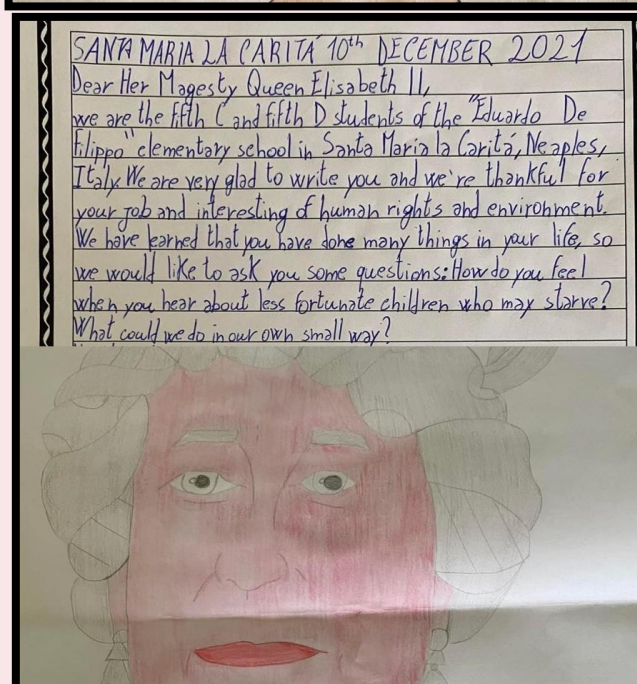 SANTA MARIA LA CARITÁ 10th DECEMBER 2021
Dear Her Magesty Queen Elisabeth II,
we are the fifth C and fifth D students of the "Eduardo De
Filippo" elementary school in Santa Maria la Caritá, Neaples,
Italy. We are very glad to write you and we're thankful for
your job and interesting of human rights and environment.
We have learned that you have done many things in your life, so
we would like to ask you some questions: How do you feel
when you hear about less fortunate children who may starve?
What could we do in our own small way?